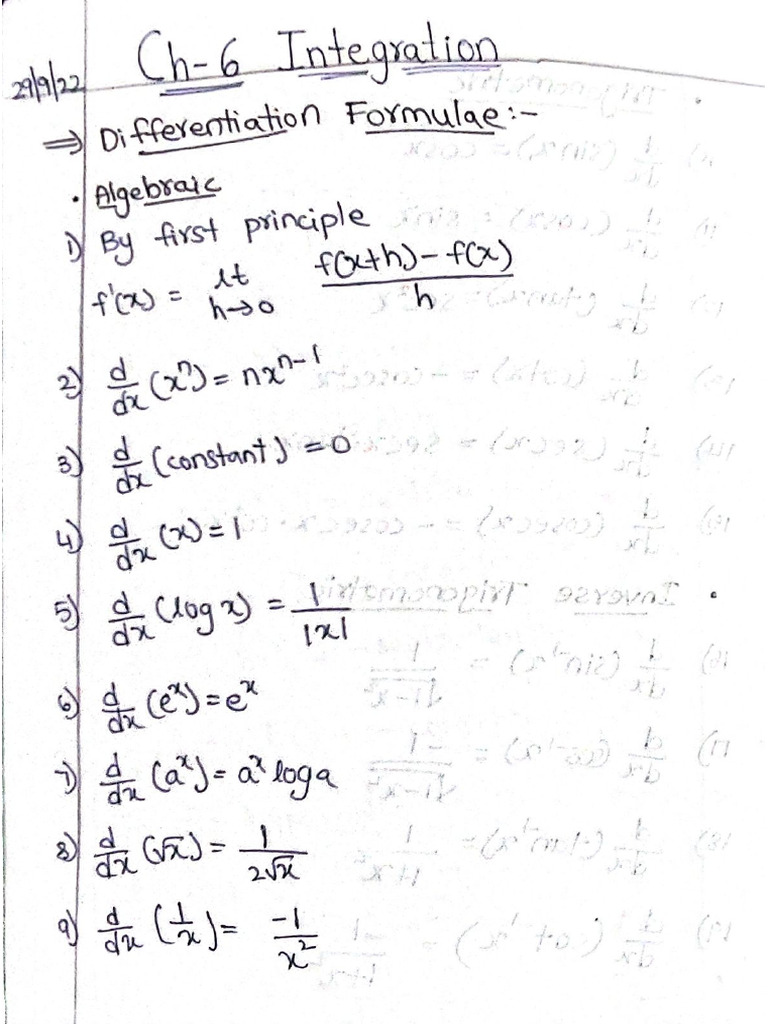 29/9/22
Ch-6 Integration
⇒ Differentiation Formulae:-
• Algebraic
1) By first principle
f'(x) = lt h→0 f(x+h)-f(x)/h
2) d/dx (xⁿ) = nxⁿ⁻¹
3) d/dx (constant) = 0
4) d/dx (x) = 1
5) d/dx (log x) = 1/|x|
6) d/dx (eˣ) = eˣ
7) d/dx (aˣ) = aˣ log a
8) d/dx (√x) = 1/2√x
9) d/dx (1/x) = -1/x²